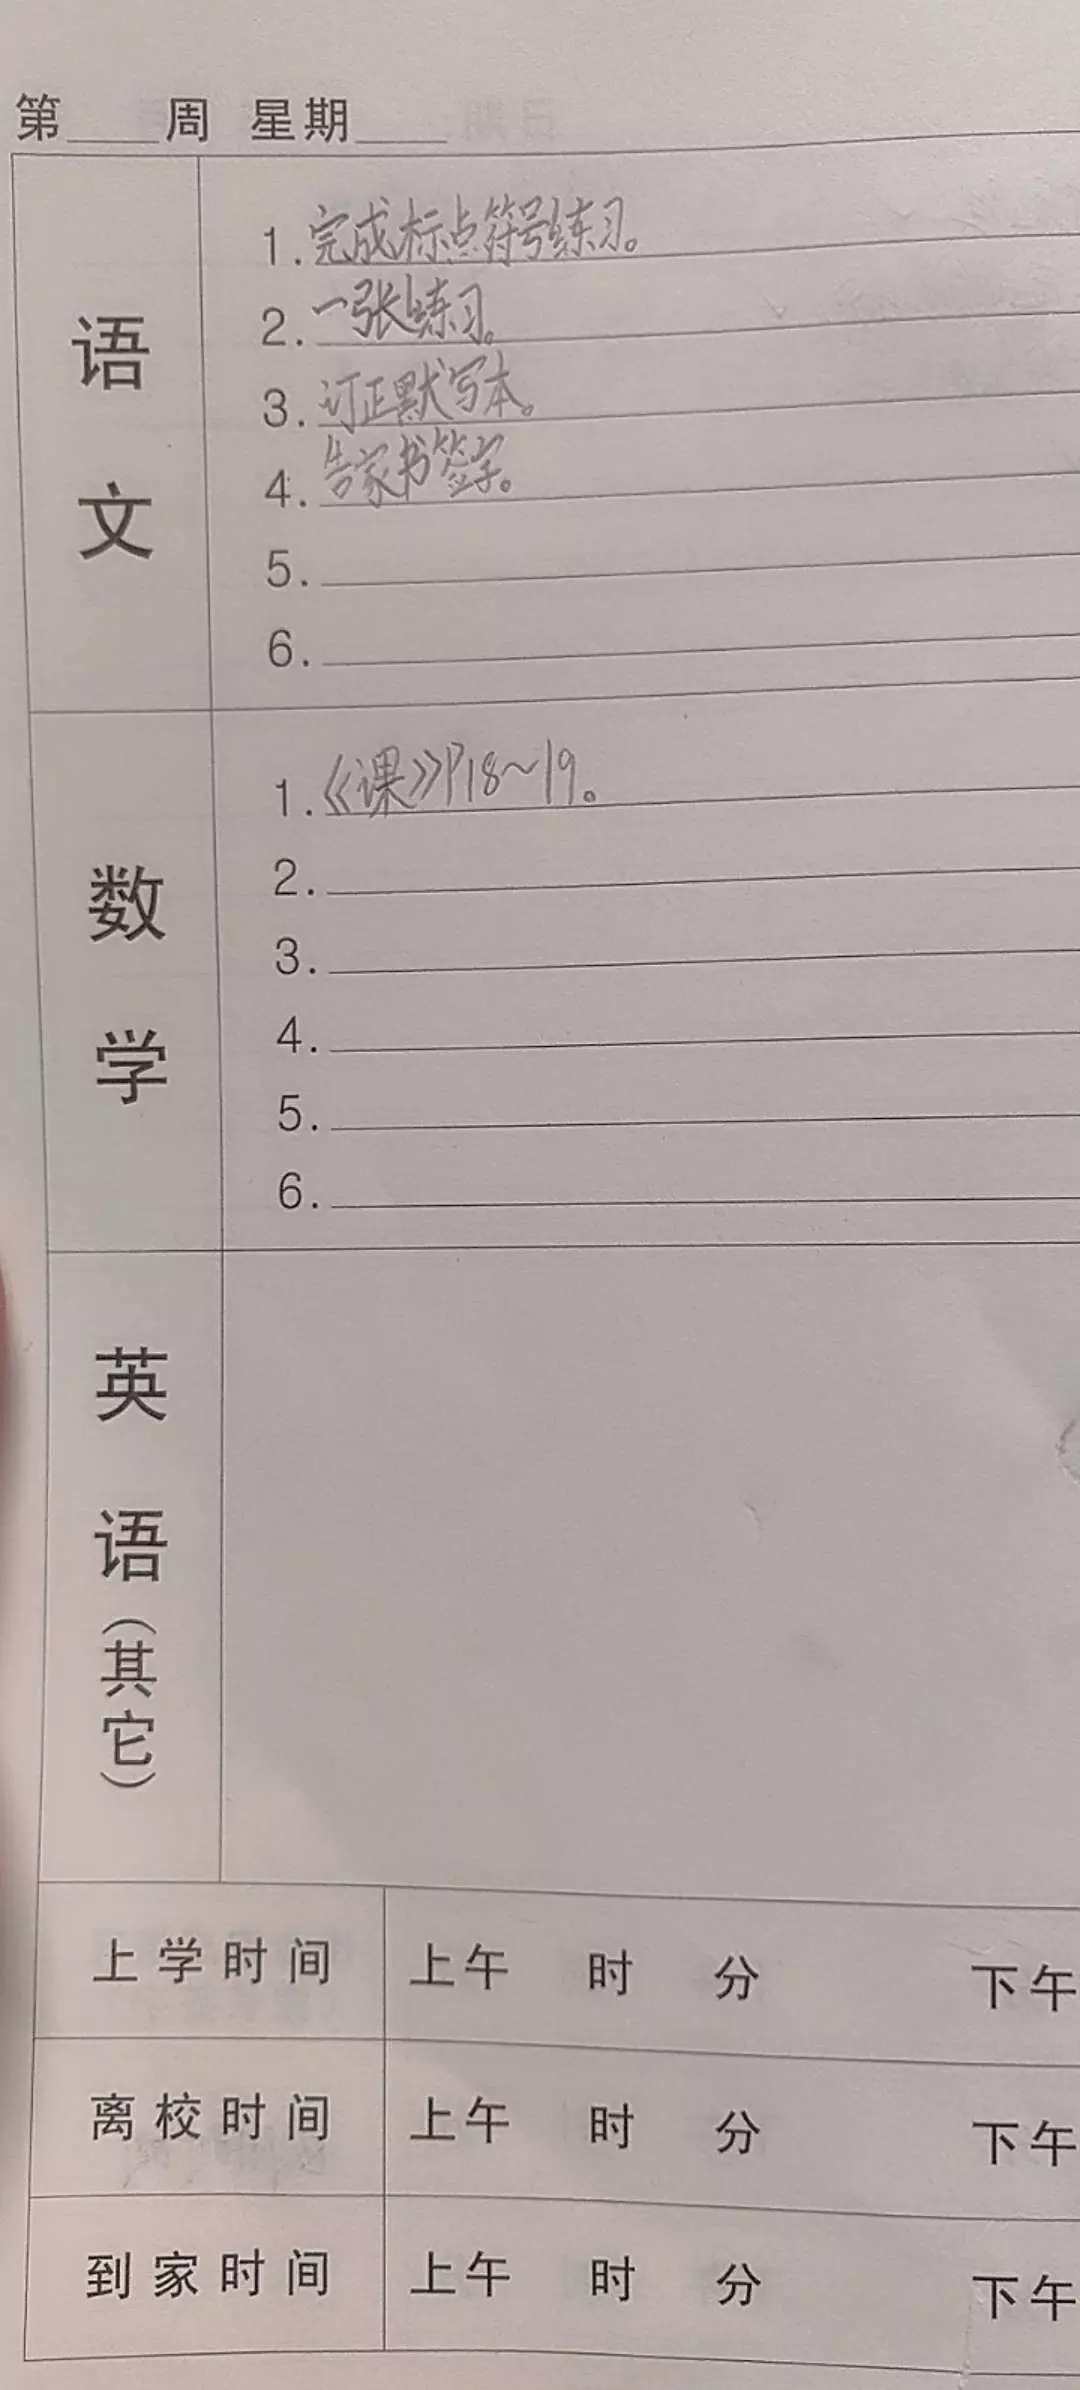 第____周 星期____
语文
1.完成标点符号练习。
2.一张练习。
3.订正默写本。
4.告家书签字。
5.
6.
数学
1.《课》P18~19。
2.
3.
4.
5.
6.
英语(其它)
上学时间 上午 时 分 下午
离校时间 上午 时 分 下午
到家时间 上午 时 分 下午